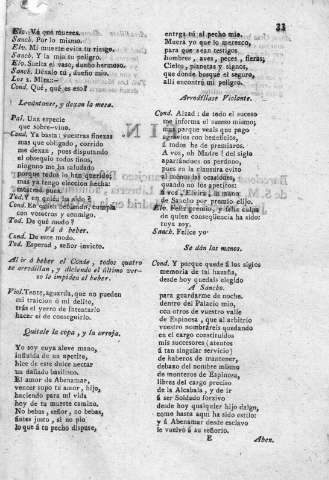 33
Elo. Vá que mueres.
Sanch. Por lo mismo.
Elo. Mi muerte evita tu riesgo.
Sanch. Y la mia tu peligro.
Elo. Suelta el vaso, dueño hermoso.
Sanch. Déxalo tú, dueño mio.
Los 2. Mira.
Cond. Qué, qué es eso?
Levántanse, y dexan la mesa.
Pal. Una especie
que sobre-vino.
Cond. Ya basta: vuestras finezas
mas que obligado, corrido
me dexan, pues disputando
el obsequio todos finos,
ninguno me ha
porque todos lo han querido:
mas ya tengo eleccion hecha:
entera
Tod. Y en quién ha sido?
Cond. En quien
con vosotros y conmigo.
Tod. De qué modo?
Vá á beber.
Cond. De este modo.
Tod. Esperad, señor invicto.
Al ir á beber el Conde, todos quatro
se arrodillan, y diciendo el último ver-
so le impiden el beber.
Viol. Tente, aguarda, que no pueden
mi traicion ó mi delito,
trás el yerro de intentarlo
hacer el de conseguirlo.
Quitale la copa, y la arroja.
Yo soy cuya aleve mano,
influida de un apetito,
hice de este dulce nectar
un dañado basilisco.
El amor de Abenamar,
vencer supo tu amor, hijo,
haciendo para mi vida
hoy de tu muerte camino.
No bebas, señor, no bebas,
ántes justo, si no pio
lo que á tu pecho dispuse,
entrga tú al pecho mio.
Muera yo que lo merezco,
para que sean testigos
hombres, aves, peces, fieras;
Cielos, planetas y signos,
que donde busqué el seguro,
allí encontró mi peligro.
Arrodíllase Violante.
Cond. Alzad: de todo el suceso
me informa el suceso mismo;
mas porque veais que pago
agravios con beneficios,
á todos he de premiaros.
A vos, oh Madre! del siglo
apartándoos os perdono,
pues en la clausura evito
el mismo las ocasiones,
quando no los apetitos:
á vos, Elvira, la mano
de Sancho por premio elijo.
Elv. Feliz premio, y feliz culpa
de quien conseqüencia ha sido
tuya soy.
Sanch. Felice yo
Se dán las manos.
Cond. Y porque quede á los siglos
memoria de tal hazaña,
desde hoy quedais elegido
A Sancho.
para guardarme de noche.
dentro del Palacio mio,
con otros de vuestro valle
de Espinosa, que al arbitrio
vuestro nombrareis quedando
en el cargo constituidos
mis successores (atentos
á tan singular servicio)
de haberos de mantener,
debaxo del nombre mismo
de monteros de Espinosa,
libres del cargo preciso
de la Alcabala, y de ir
á ser Soldado forzivo
desde hoy qualquier hijo dalgo,
como hasta aquí ha sido estilo:
y á Abenamar desde esclavo
le vuelvo á su señorío.
E
Aben.